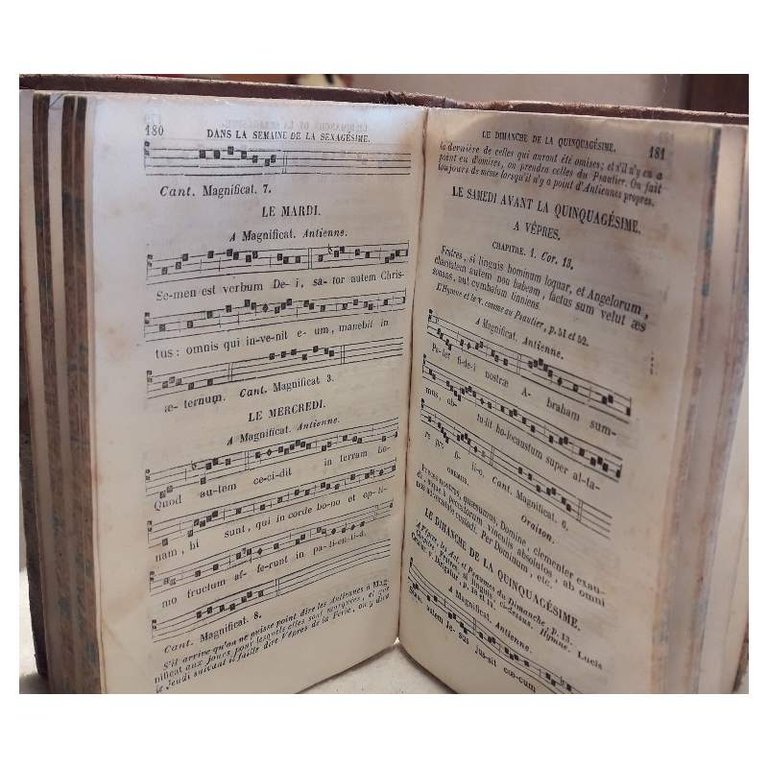 180 DANS LA SEMAINE DE LA SEXAGÉSIME.
Cant. Magnificat. 7.
LE MARDI.
A Magnificat. Antienne.
Se-men est verbum De-i, sa-tor autem Chris-
tus: omnis qui in-ve-nit e-um, manebit in
æ-ternum. Cant. Magnificat 3.
LE MERCREDI.
A Magnificat. Antienne.
Quod au-tem ce-ci-dit in terram bo-
nam, hi sunt, qui in corde bo-no et op-ti-
mo fructum af-fe-runt in pa-ti-en-ti-â.
Cant. Magnificat. 8.
S'il arrive qu'on ne puisse point dire les Antiennes à Mag-
nificat aux jours pour lesquels elles sont marquées, et que
le Jeudi suivant il faille dire Vêpres de la Férie, on y dira
LE DIMANCHE DE LA QUINQUAGÉSIME. 181
la dernière de celles qui auront été omises; et s'il n'y en a
point eu d'omises, on prendra celles du Psautier. On fait
toujours de même lorsqu'il n'y a point d'Antiennes propres.
LE SAMEDI AVANT LA QUINQUAGÉSIME.
A VÊPRES.
CHAPITRE. 1. Cor. 13.
Fratres, si linguis hominum loquar, et Angelorum,
charitatem autem non habeam, factus sum velut æs
sonans, aut cymbalum tinniens.
L'Hymne et le ℣. comme au Psautier, p. 51 et 52.
A Magnificat. Antienne.
Pa-ter fi-de-i nostræ A-braham sum-
mus, ob-tu-lit ho-locaustum super al-ta-
re pro fi-li-o. Cant. Magnificat. 6.
Oraison.
quæsumus, Domine, clementer exau-
di, atque à peccatorum vinculis absolutos, ab omni
nos adversitate custodi: Per Dominum, etc.
LE DIMANCHE DE LA QUINQUAGÉSIME.
A Vêpres, les Ant. et Psaumes du Dimanche, p. 13.
Chapitre, Fratres, si linguis, ci-dessus. Hymne. Lucis
A Magnificat. Antienne.
Je-sus jus-sit cæ-cum